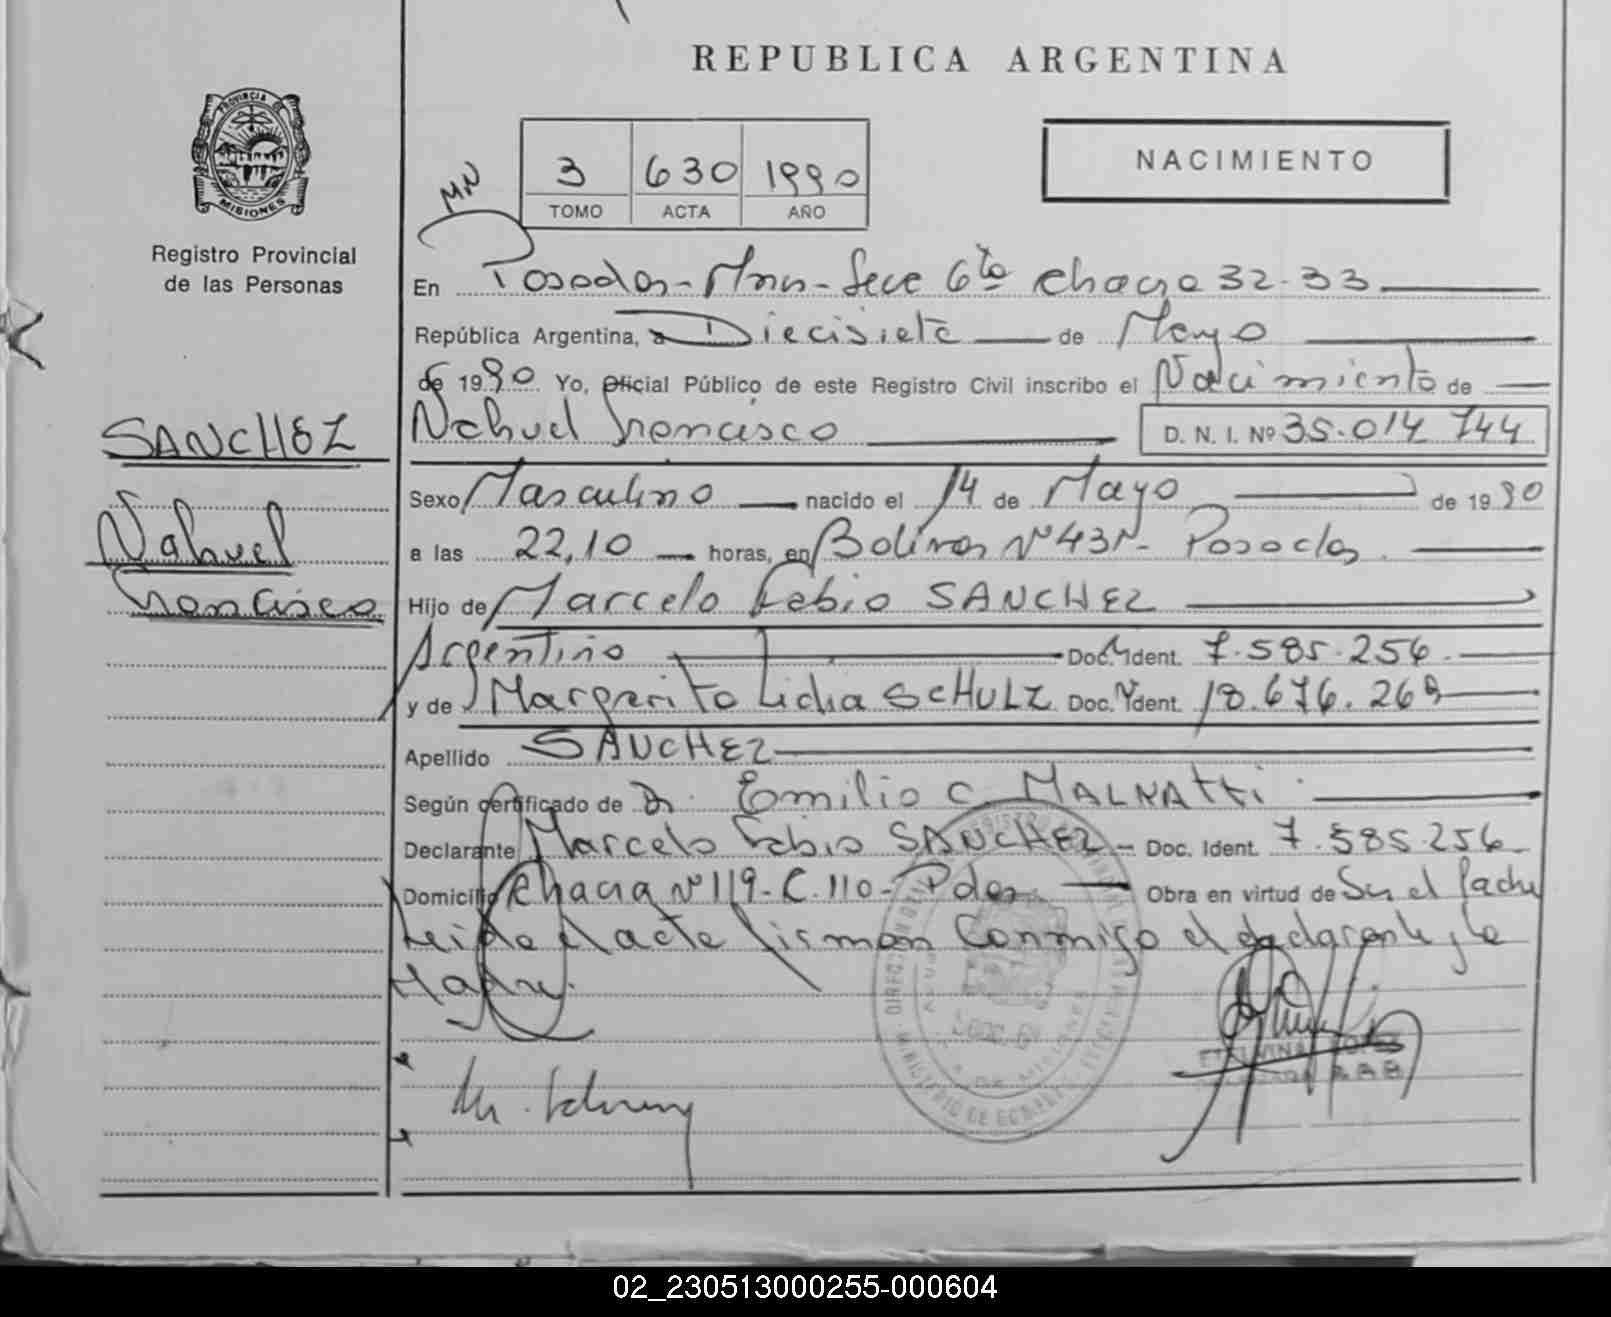 REPUBLICA ARGENTINA
PROVINCIA DE
MISIONES
Registro Provincial
de las Personas
MN
3 630 1990
TOMO ACTA AÑO
NACIMIENTO
En Posadas - Mnes - Secc 6ta Chacra 32-33
República Argentina, a Diecisiete de Mayo
de 1990 Yo, Oficial Público de este Registro Civil inscribo el Nacimiento de
Nahuel Francisco D. N. I. Nº 35.014 744
SANCHEZ
Nahuel
Francisco
Sexo Masculino nacido el 14 de Mayo de 1990
a las 22,10 horas, en Bolivar Nº Posadas
Hijo de Marcelo Fabio SANCHEZ
Argentino Doc. Ident. 7.585.256
y de Margarita Lidia SCHULZ Doc. Ident. 18.676.269
Apellido SANCHEZ
Según certificado de Dr. Emilio C. MALNATTI
Declarante Marcelo Fabio SANCHEZ - Doc. Ident. 7.585.256
Domicilio Chacra Nº 119 - C. 110 - Pdas Obra en virtud de Ser el Padre
Leida el acta firman Conmigo el declarante y la
Madre.
02_230513000255-000604